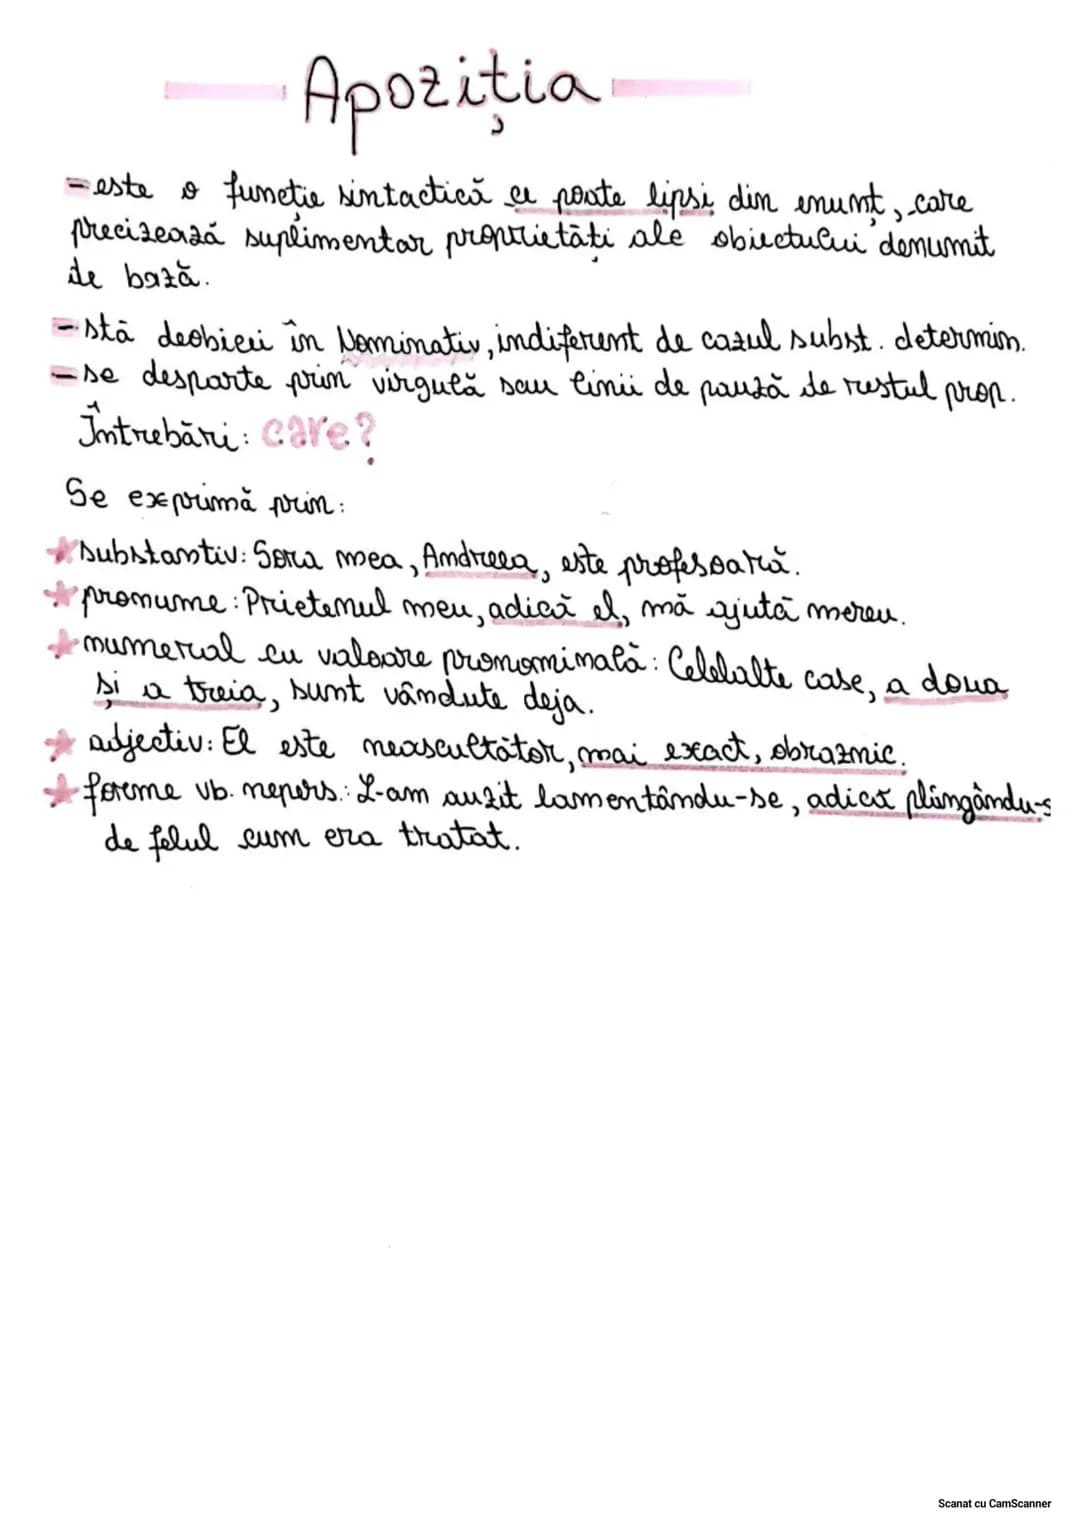 Apoziția
- este o funcție sintactică ce poate lipsi din enunț, care
precizează suplimentar proprietăți ale obiectului denumit
de bază.
- stă deobicei în Nominativ, indiferent de cazul subst. determin.
- se desparte prin virgulă sau linii de pauză de restul prop.
Întrebări: care?
Se exprimă prin:
★ substantiv: Sora mea, Andreea, este profesoară.
★ pronume: Prietenul meu, adică el, mă ajută mereu.
★ numeral cu valoare pronominală: Celelalte case, a doua
și a treia, sunt vândute deja.
★ adjectiv: El este neascultător, mai exact, obraznic.
★ forme vb. nepers.: L-am auzit lamentându-se, adică plângându-s
de felul cum era tratat.
Scanat cu CamScanner